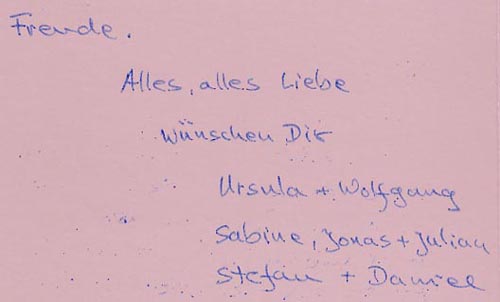 Freude.
Alles, alles Liebe
wünschen Dir
Ursula + Wolfgang
Sabine, Jonas + Julian
Stefan + Daniel